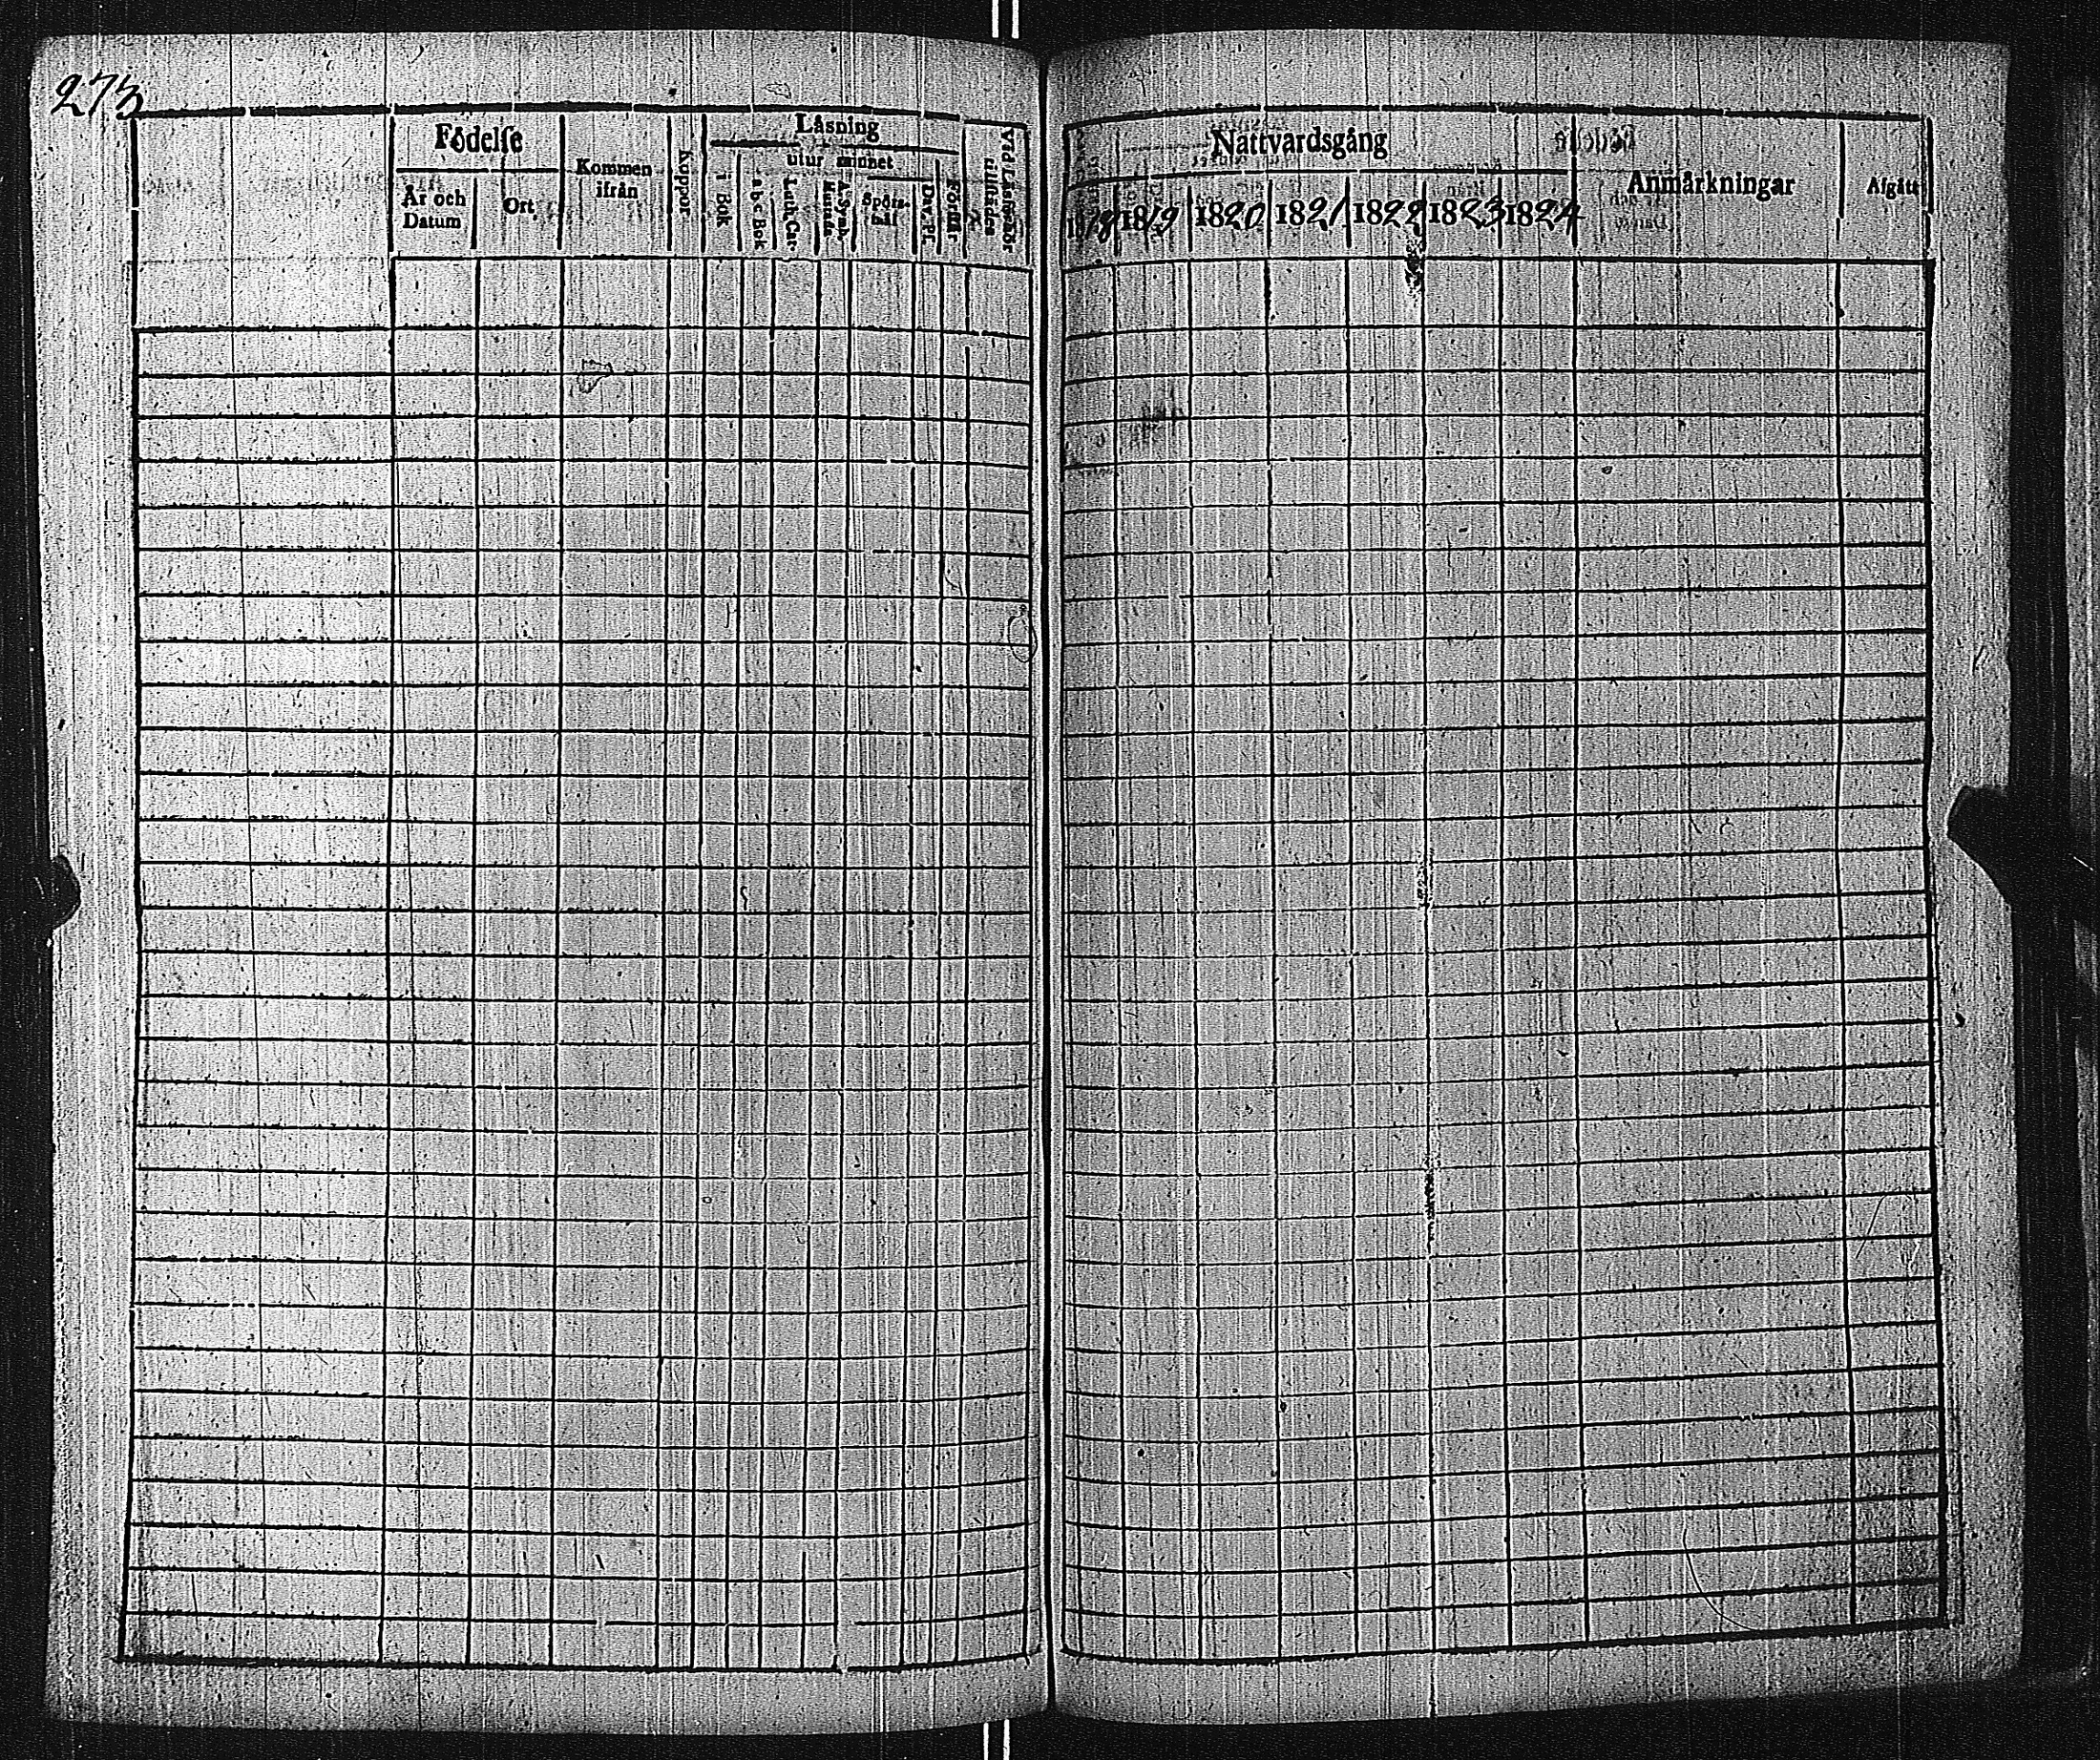 273
Födelse
År och Datum
Ort
Kommen ifrån
Koppor
Läsning
i Bok
utur minnet
a.b.c. Bok
Luth. Cat.
A. Symb. Hustafl.
Spörs-mål
Dav. Ps.
Förstår
Vid Läsmöör tillstädes
Nattvardsgång
1818 1819 1820 1821 1822 1823 1824
Anmärkningar
Afgått